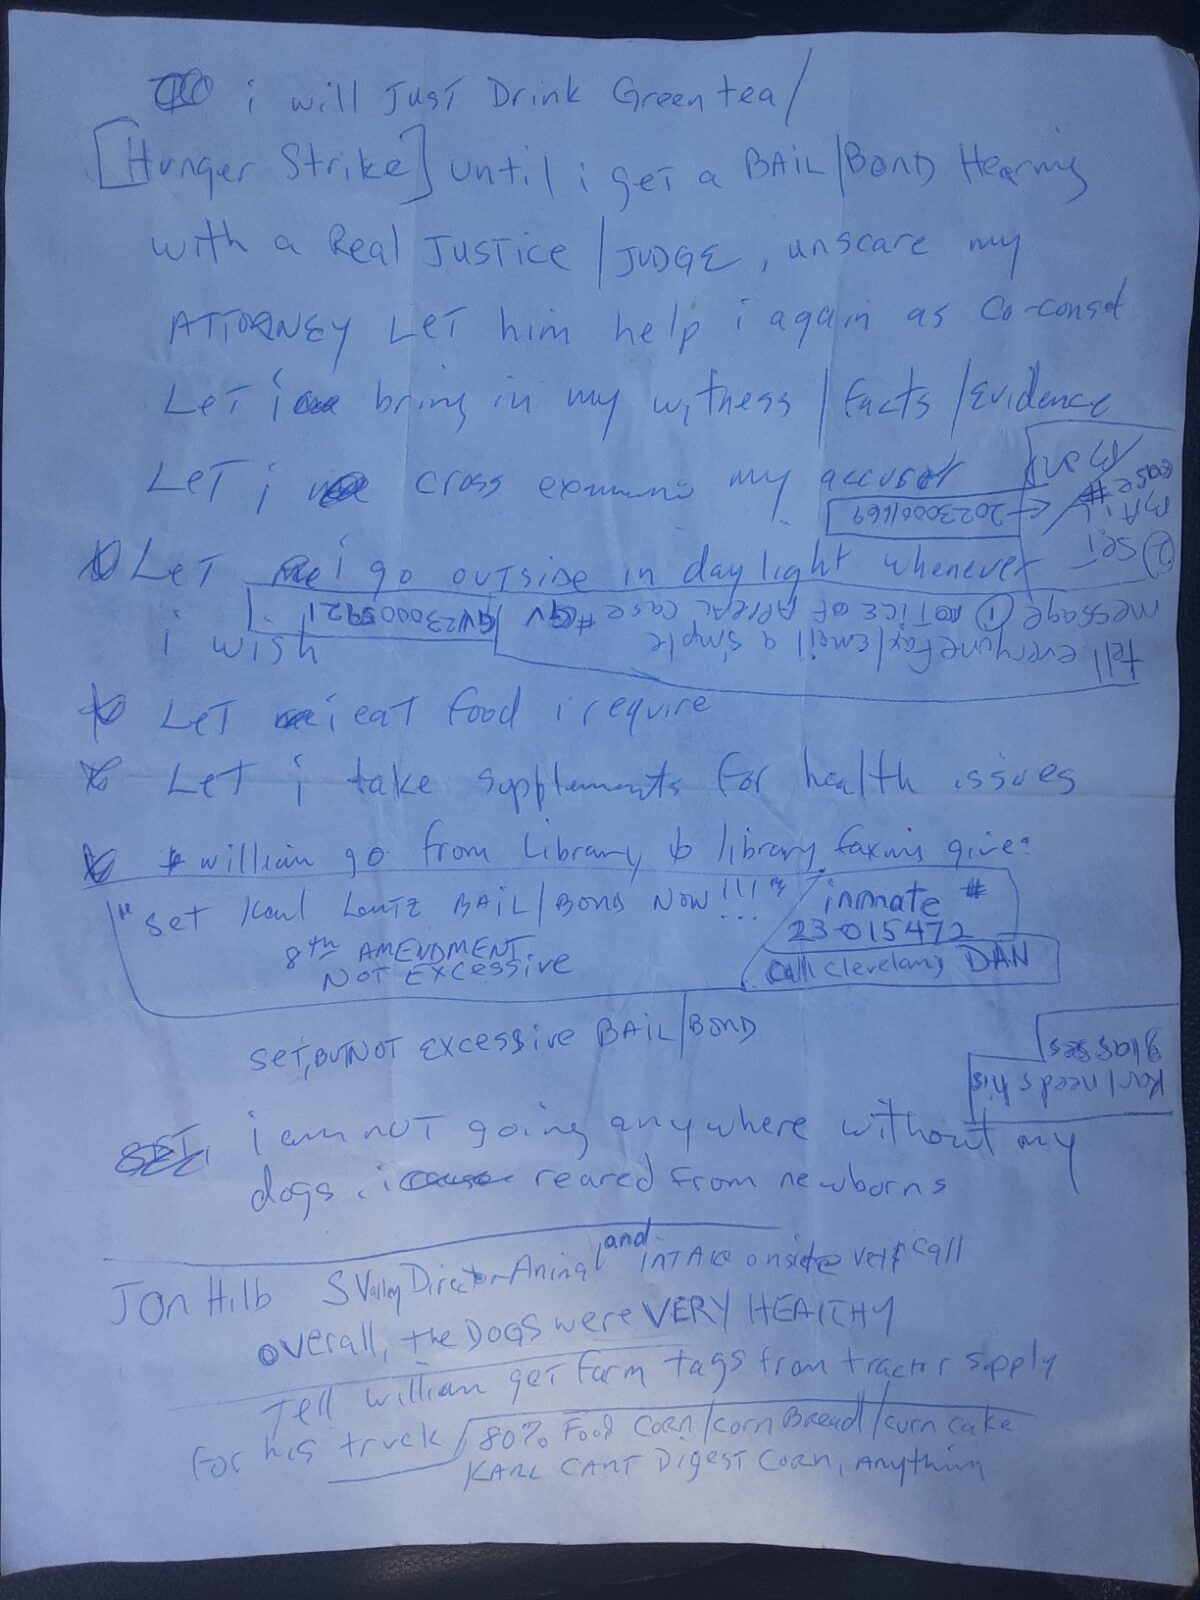 i will JUST Drink Green tea/
[Hunger Strike] until i get a BAIL/BOND Hearing
with a Real JUSTICE/JUDGE, unscare my
ATTORNEY LET him help i again as co-consel
LeT i bring in my witness/facts/evidence
LeT i cross examine my accuser
LeT i go OUTSIDE in daylight whenever
i wish
tell everyone fax/email a simple
message ① NOTICE OF APPEAL case #
② SeT
BAIL/
Bond
case #
20230001669
LeT i eat food i require
LeT i take supplements for health issues
william go from Library to library faxing give:
"set Karl Lentz BAIL/BOND NOW!!!"
8th AMENDMENT
NOT EXCESSIVE
inmate #
23-015472
Call Cleveland DAN
SeT, BUT NOT EXCESSIVE BAIL/BOND
Karl needs his
glasses
i am NOT going anywhere without my
dogs. i reared from newborns
JON Hilb S Valley Director Animal and INTAKE onsite vet call
overall, the DOGS were VERY HEALTHY
Tell william get farm tags from tractor supply
For his truck
80% Food CORN/corn Bread/corn cake
KARL CANT DIgEST CORN, Anything